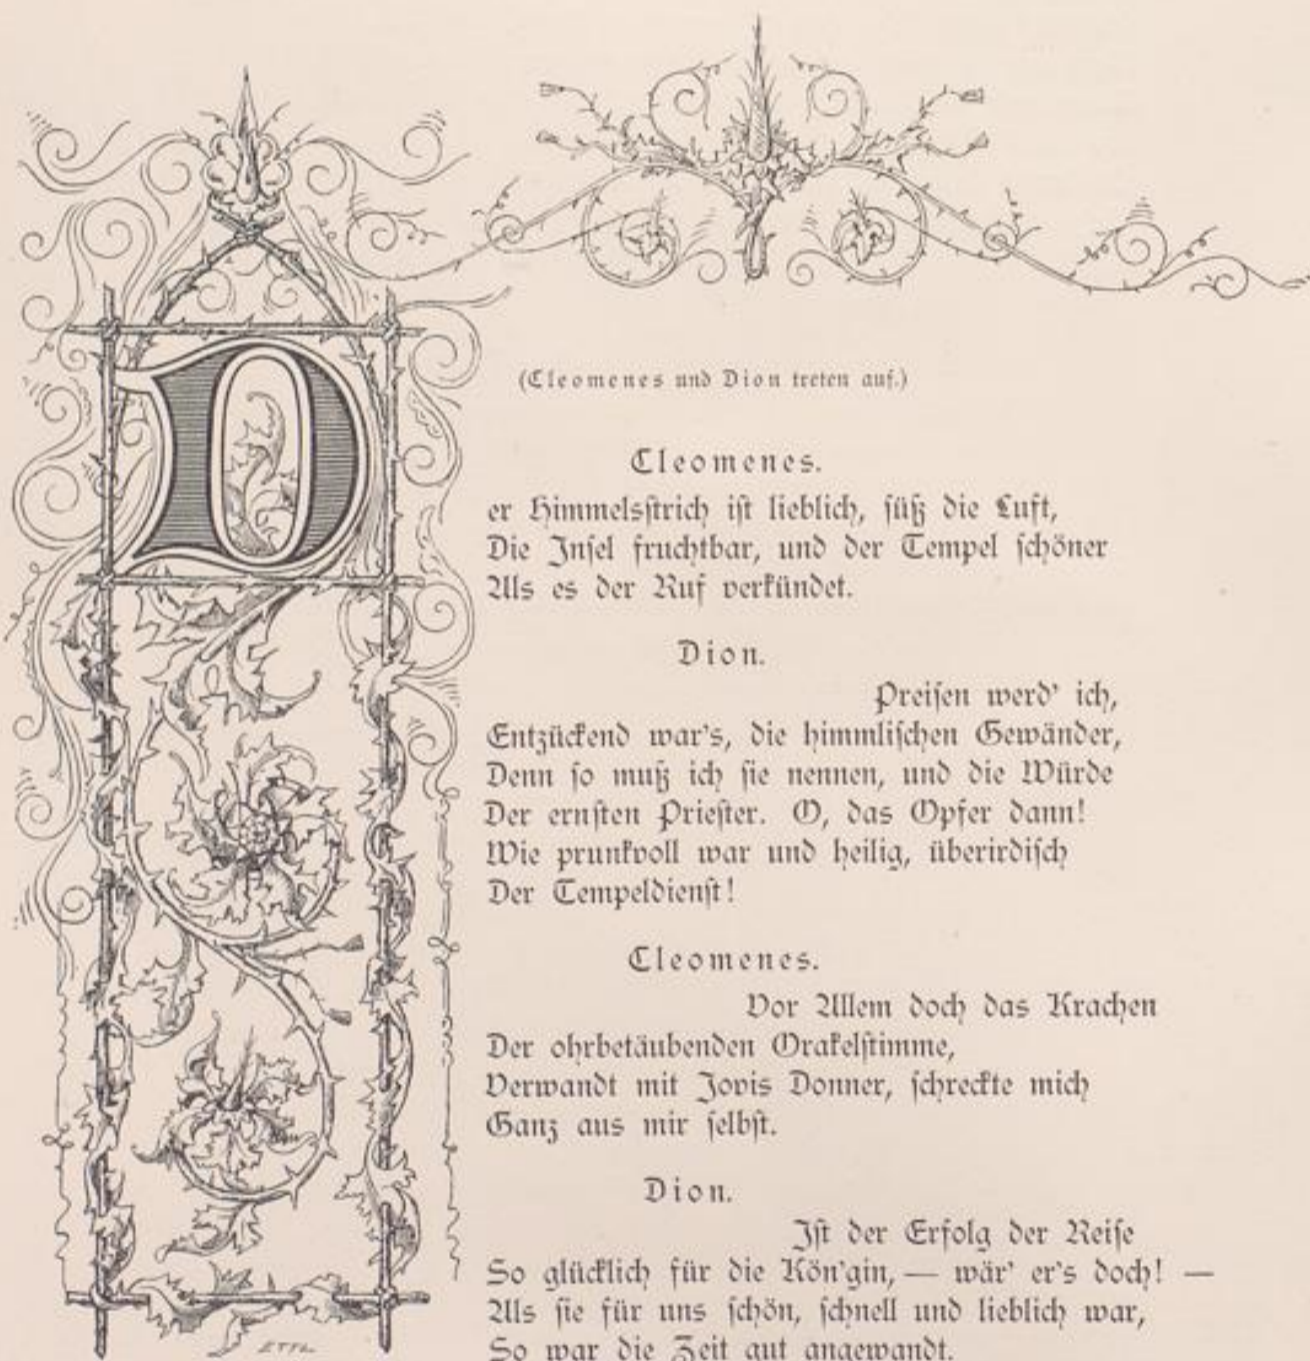 (Cleomenes und Dion treten auf.)
Cleomenes.
Der Himmelsstrich ist lieblich, süß die Luft,
Die Insel fruchtbar, und der Tempel schöner
Als es der Ruf verkündet.
Dion.
Preisen werd' ich,
Entzückend war's, die himmlischen Gewänder,
Denn so muß ich sie nennen, und die Würde
Der ernsten Priester. O, das Opfer dann!
Wie prunkvoll war und heilig, überirdisch
Der Tempeldienst!
Cleomenes.
Vor Allem doch das Krachen
Der ohrbetäubenden Orakelstimme,
Verwandt mit Jovis Donner, schreckte mich
Ganz aus mir selbst.
Dion.
Ist der Erfolg der Reise
So glücklich für die Kön'gin, — wär' er's doch! —
Als sie für uns schön, schnell und lieblich war,
So war die Zeit gut angewandt.
ETTL